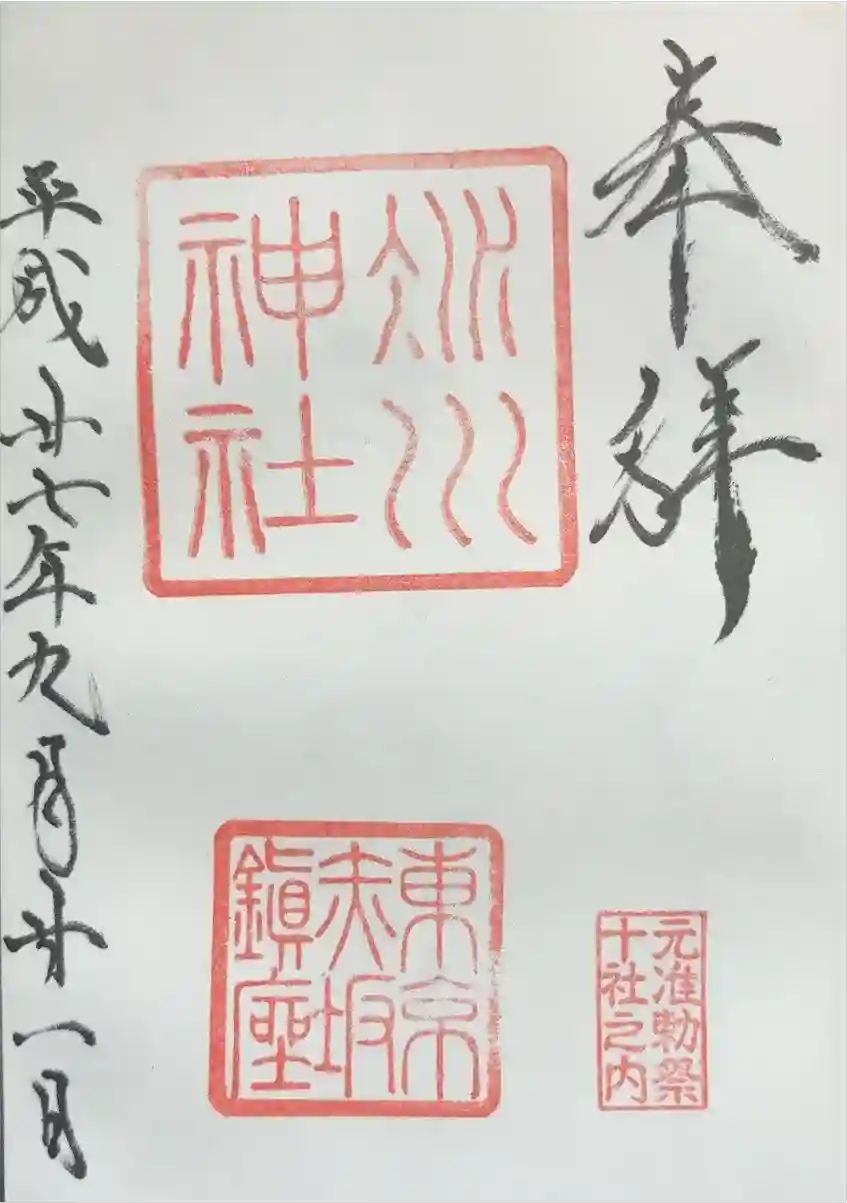 奉拝
氷川
神社
元准勅祭
十社之内
東京
赤坂
鎮座
平成廿七年九月廿一日